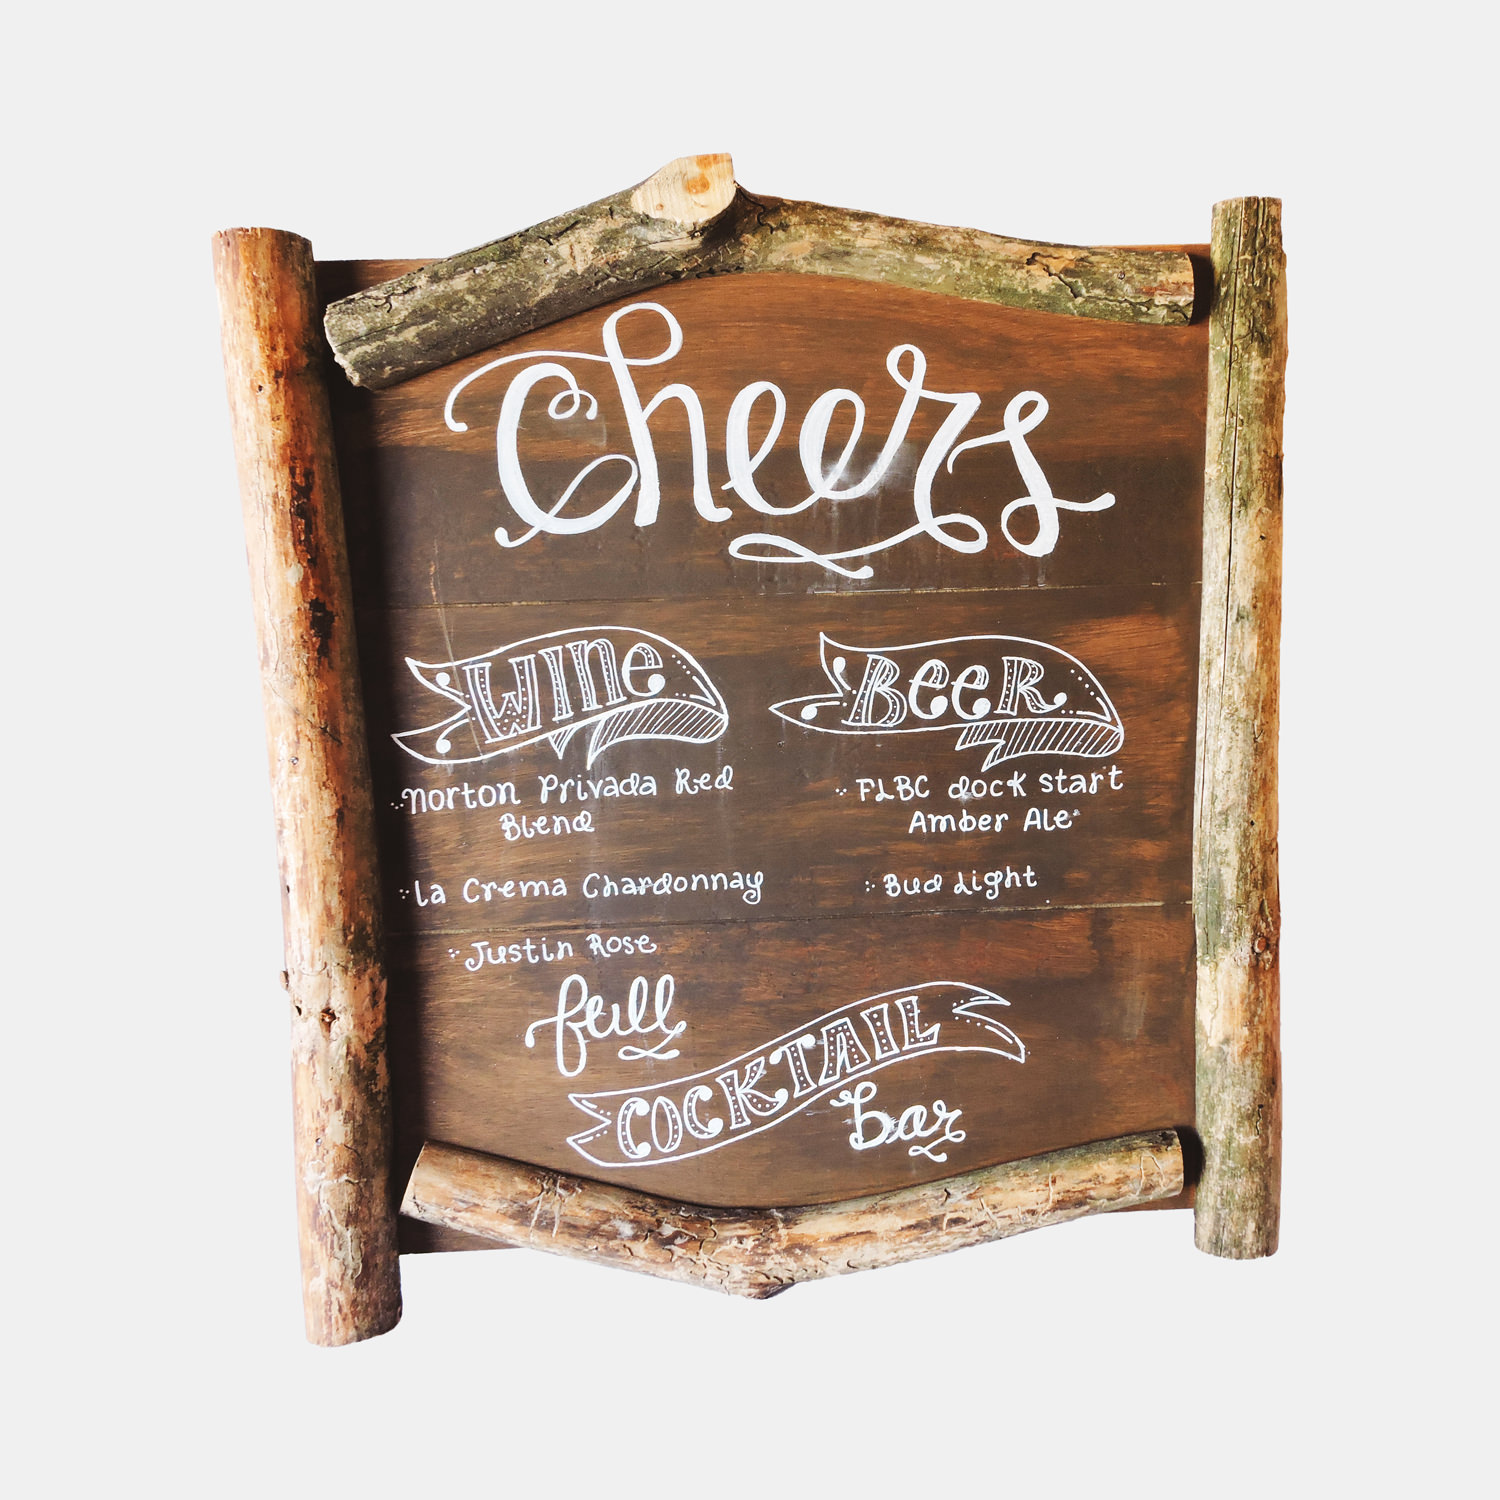 Cheers
Wine
Norton Privada Red
Blend
la Crema Chardonnay
Justin Rose
Beer
FLBC dock start
Amber Ale
Bud Light
full
COCKTAIL
bar